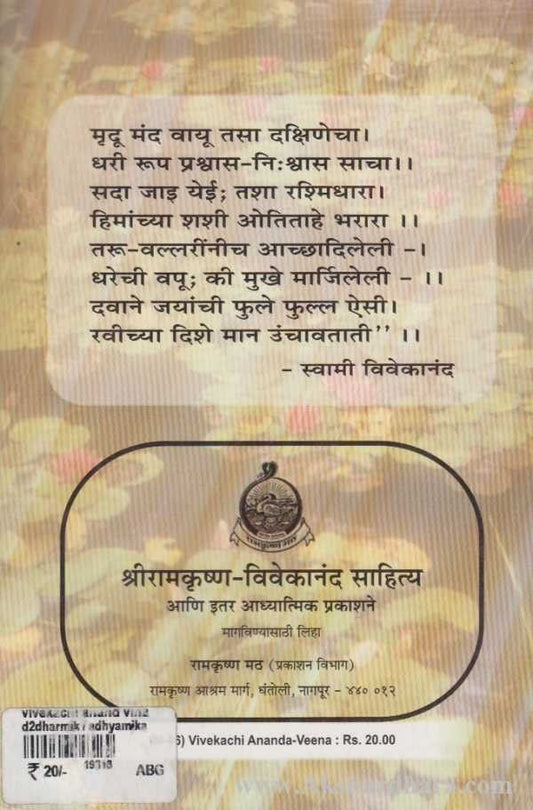 मृदू मंद वायू तसा दक्षिणेचा।
धरी रूप प्रश्वास-नि:श्वास साचा।।
सदा जाइ येई; तशा रश्मिधारा।
हिमांच्या शशी ओतिताहे भरारा ।।
तरू-वल्लरींनीच आच्छादिलेली -।
धरेची वपू; की मुखे मार्जिलेली - ।।
दवाने जयांची फुले फुल्ल ऐसी।
रवीच्या दिशे मान उंचावताती’’ ।।
- स्वामी विवेकानंद
रामकृष्ण मठ
श्रीरामकृष्ण-विवेकानंद साहित्य
आणि इतर आध्यात्मिक प्रकाशने
मागविण्यासाठी लिहा
रामकृष्ण मठ (प्रकाशन विभाग)
रामकृष्ण आश्रम मार्ग, धंतोली, नागपूर - ४४० ०१२
Vivekachi Ananda-Veena : Rs. 20.00
vivekachi anand vina
d2dharmik / adhyamika
₹ 20/- ABG